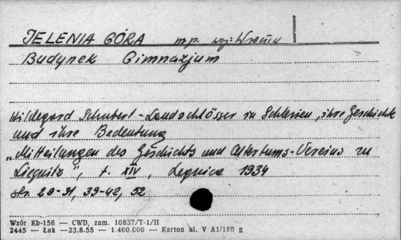 JELENIA GÓRA m.p. woj. Wrocław
Budynek Gimnazjum
Hildegard Schubert - Landschlösser in Schlesien, ihre Geschichte
und ihre Bedeutung
"Mitteilungen des Geschichts und Altertums-Vereins zu
Liegnitz", t. XIV, Legnica 1934
str. 20-31, 39-42, 52
Wzór Kb-156 — CWD, zam. 10837/T-1/II
2445 — Łsk —23.8.55 — 1.460.000 — Karton kl. V A1/180 g